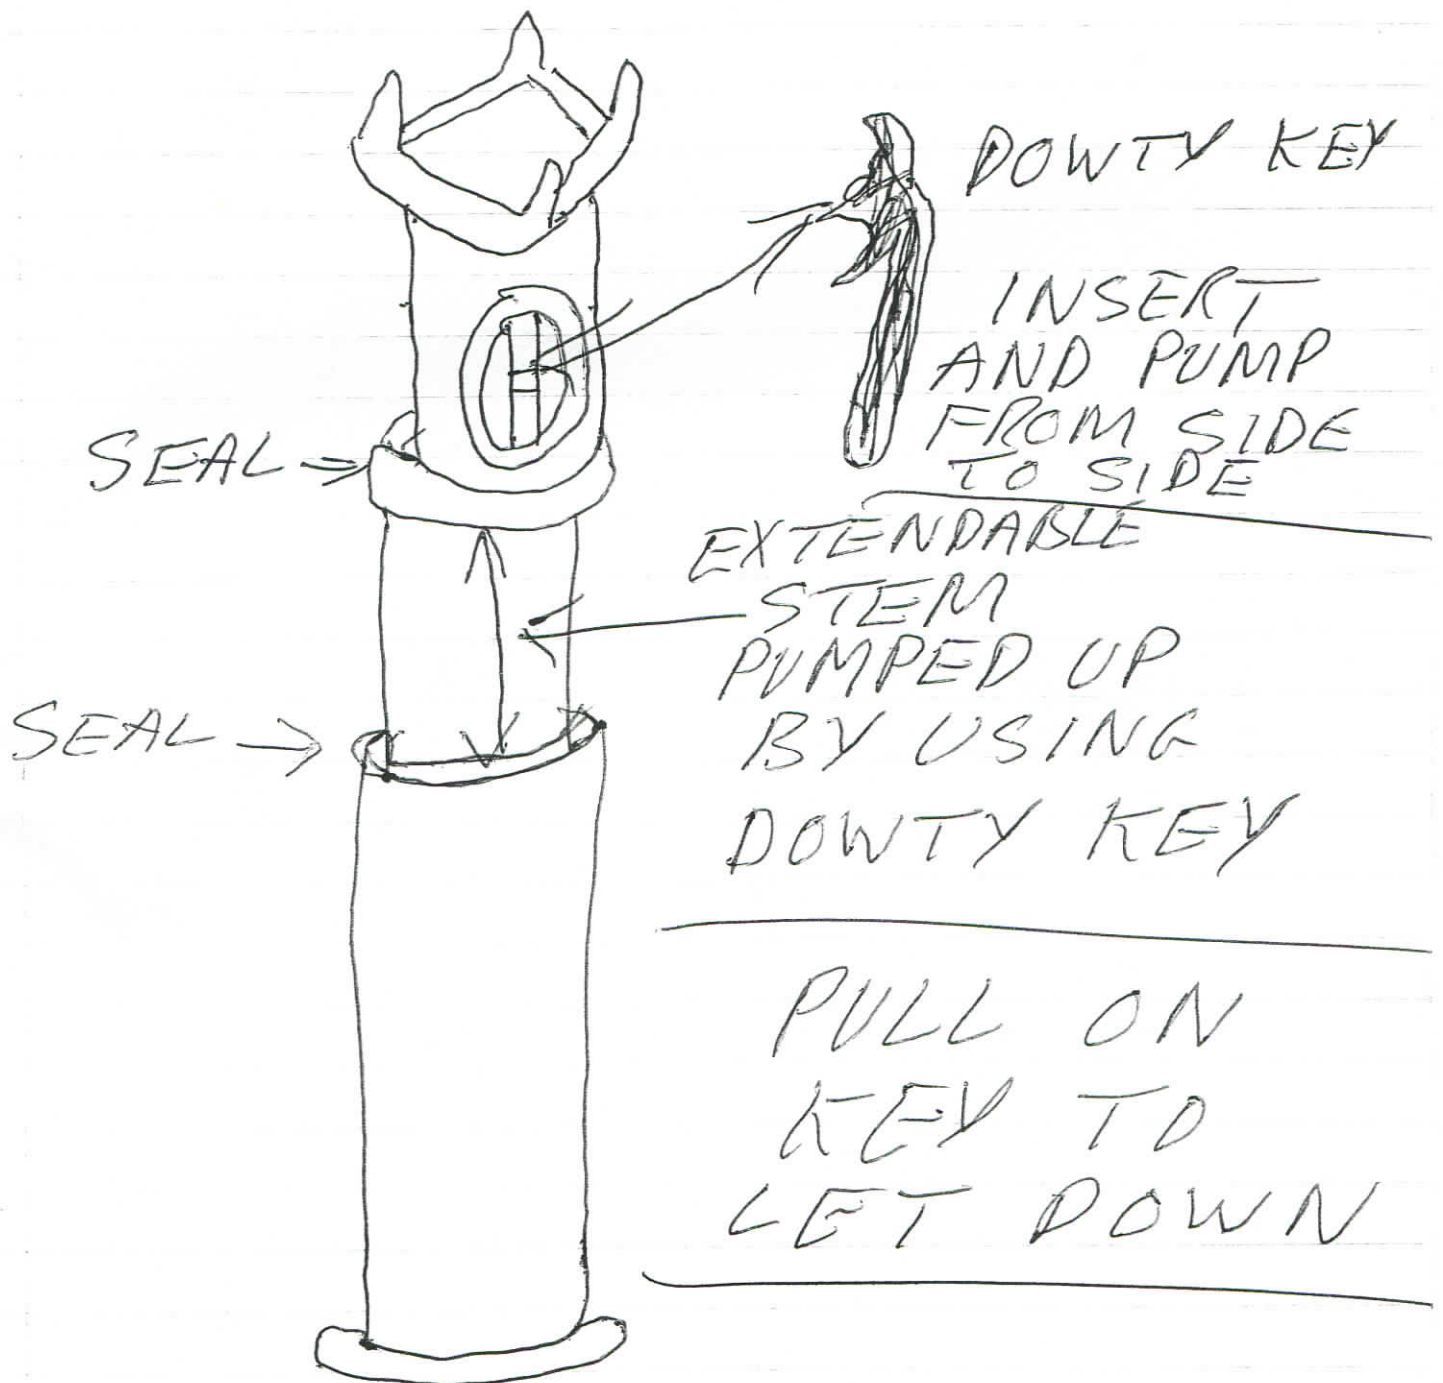 DOWTY KEY
INSERT
AND PUMP
FROM SIDE
TO SIDE
SEAL
EXTENDABLE
STEM
PUMPED UP
BY USING
DOWTY KEY
SEAL
PULL ON
KEY TO
LET DOWN